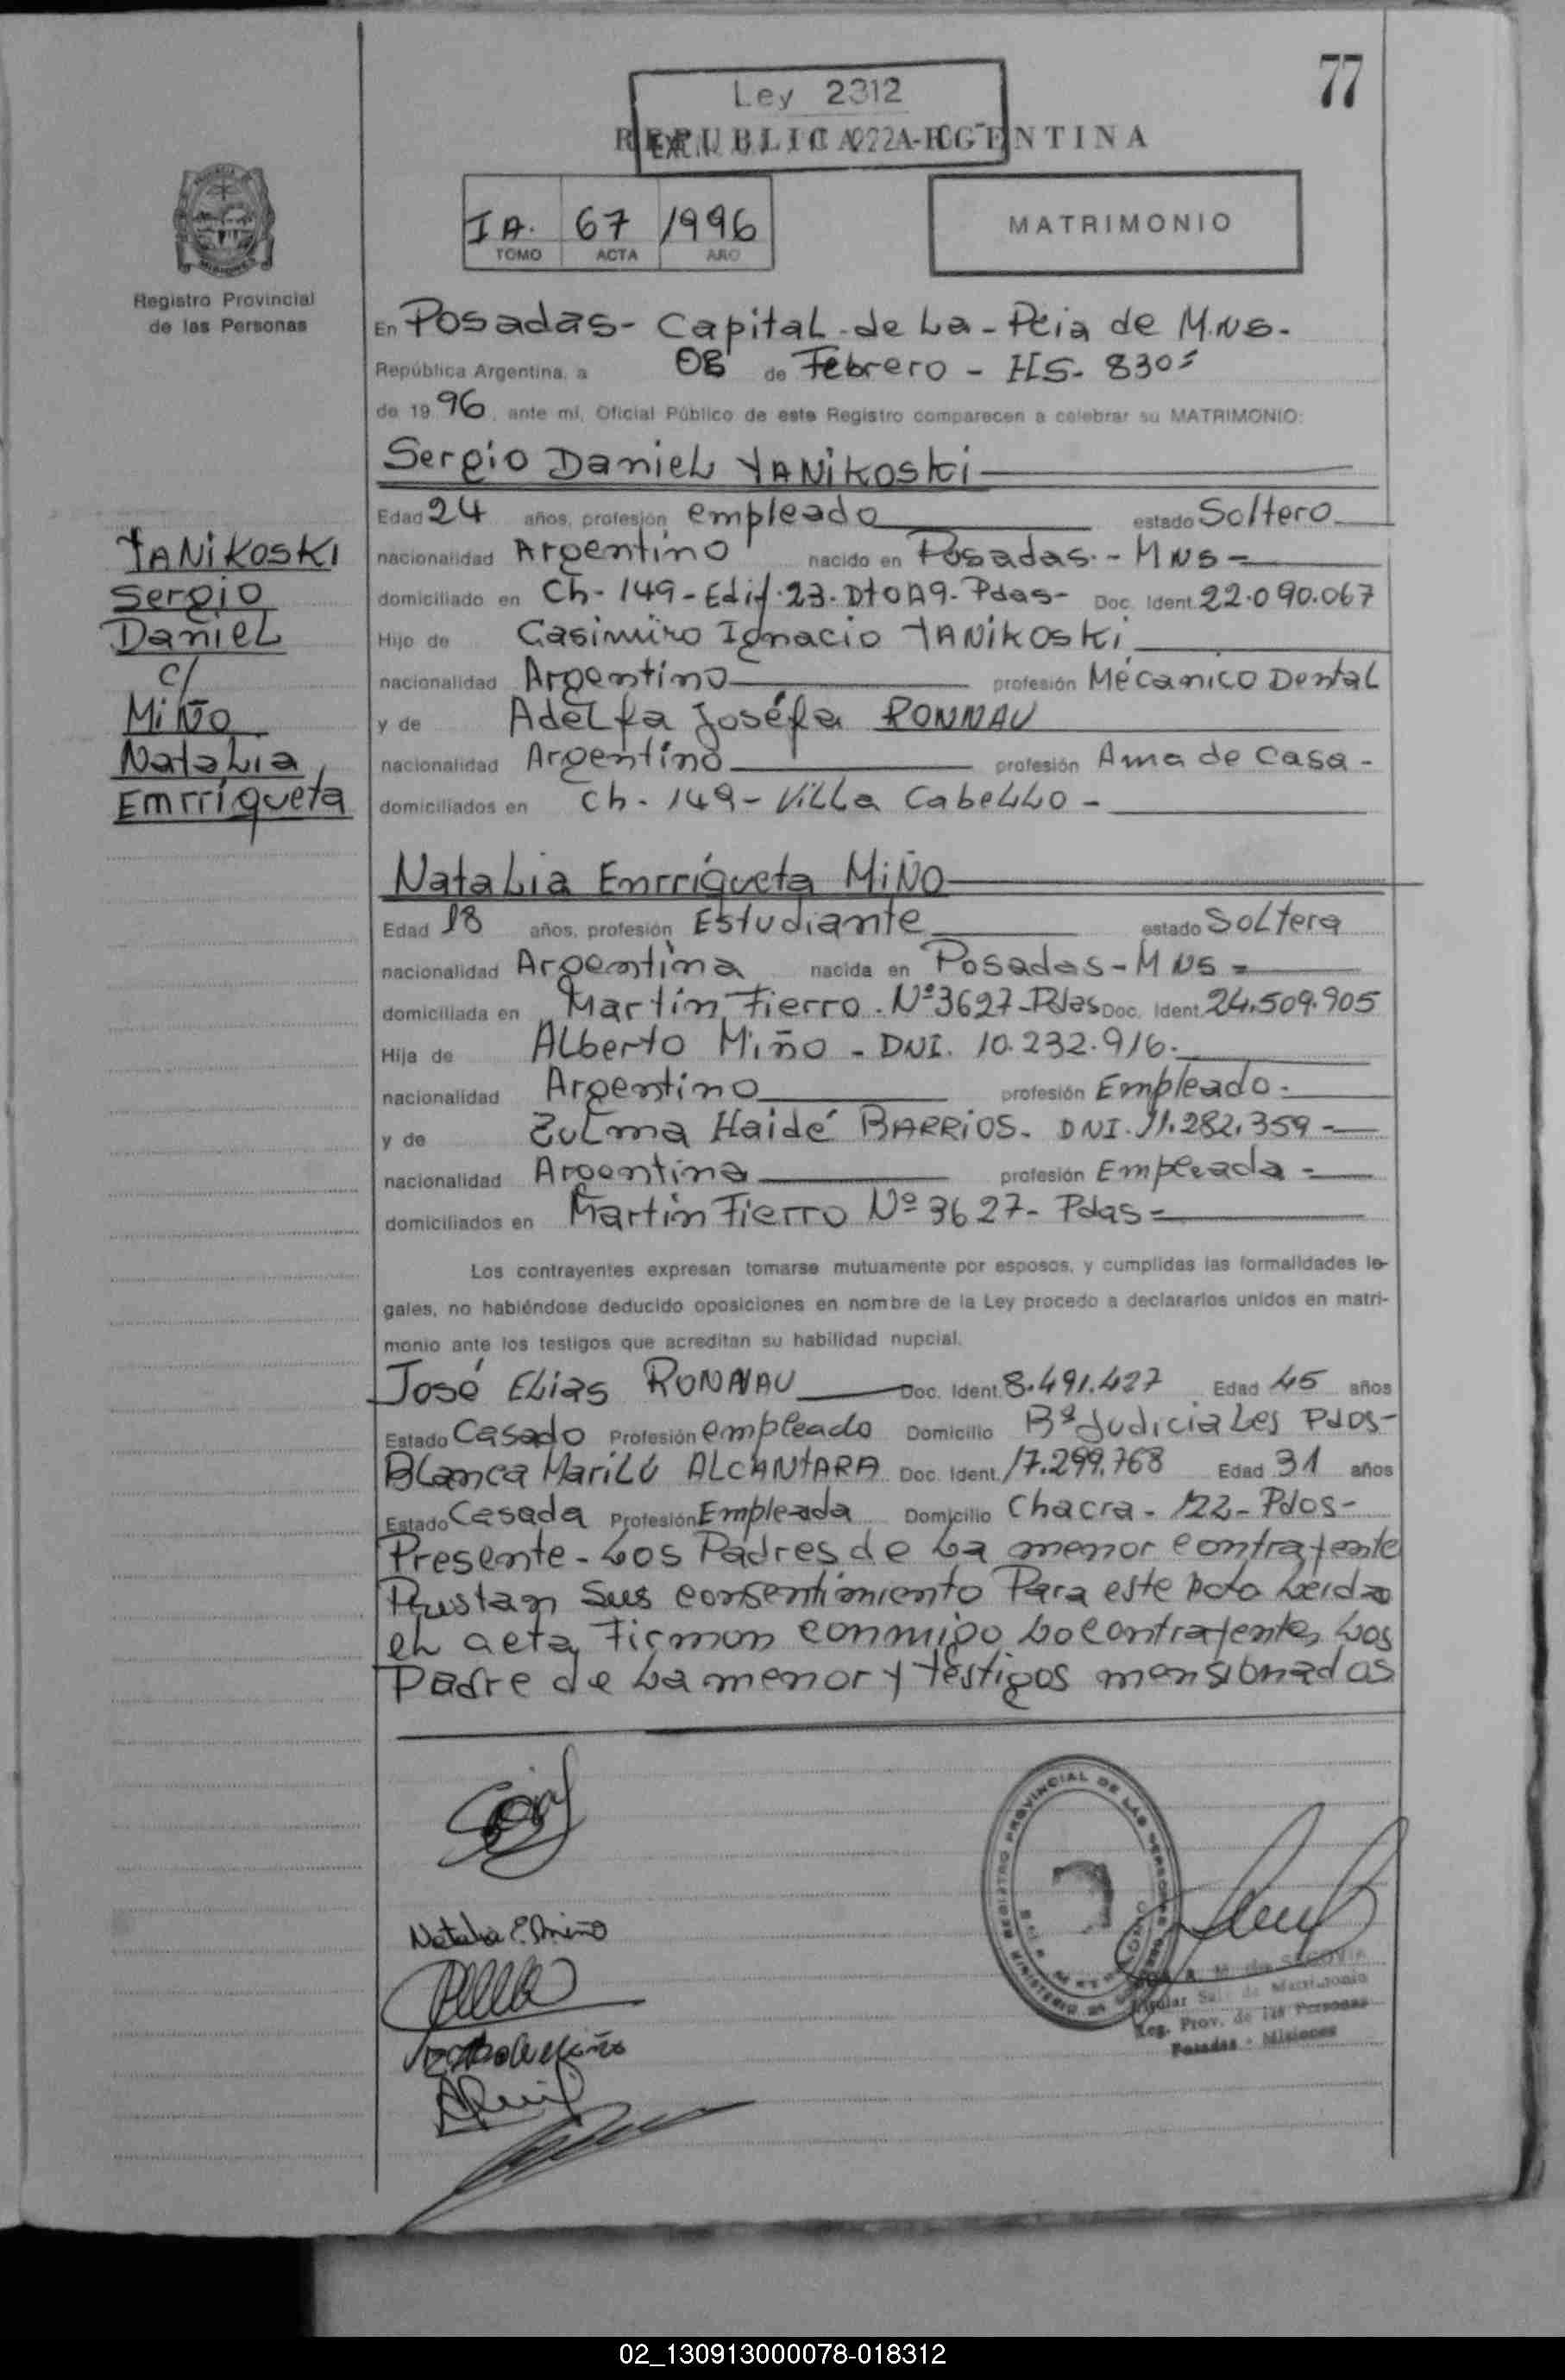 77
Ley 2312
REPUBLICA ARGENTINA
I A. 67 1996
TOMO ACTA AÑO
MATRIMONIO
MISIONES
Registro Provincial
de las Personas
En Posadas- Capital-de La-Pcia de M.NS-
República Argentina, a 08 de Febrero - HS- 830=
de 19 96, ante mí, Oficial Público de este Registro comparecen a celebrar su MATRIMONIO:
Sergio Daniel YANIKOSKI
Edad 24 años, profesión empleado estado Soltero
nacionalidad Argentino nacido en Posadas - MNS=
domiciliado en Ch- 149-Edif.23-Dto A9-Pdas- Doc. Ident. 22.090.067
Hijo de Casimiro Ignacio YANIKOSKI
nacionalidad Argentino profesión Mécanico Dental
y de Adelfa Joséfa RONNAU
nacionalidad Argentino profesión Ama de Casa -
domiciliados en Ch- 149- Villa Cabello -
YANIKOSKI
Sergio
Daniel
c/
Miño
Natalia
Emrriqueta
Natalia Emrriqueta MIÑO
Edad 18 años, profesión Estudiante estado Soltera
nacionalidad Argentina nacida en Posadas-MNS=
domiciliada en Martín Fierro. Nº3627-Pdas Doc. Ident. 24.509.905
Hija de Alberto Miño - DNI. 10.232.916.
nacionalidad Argentino profesión Empleado-
y de Zulma Haidé BARRIOS- DNI. 11.282.359-
nacionalidad Argentina profesión Empleada=
domiciliados en Martín Fierro Nº 3627- Pdas=
Los contrayentes expresan tomarse mutuamente por esposos, y cumplidas las formalidades le-
gales, no habiéndose deducido oposiciones en nombre de la Ley procedo a declararlos unidos en matri-
monio ante los testigos que acreditan su habilidad nupcial.
José Elias RONNAU Doc. Ident. 8.491.427 Edad 45 años
Estado Casado Profesión empleado Domicilio Bº Judiciales Pdos-
Blanca Marilú ALCANTARA Doc. Ident. 17.299.768 Edad 31 años
Estado Casada Profesión Empleada Domicilio Chacra- 122-Pdos-
Presente-Los Padres de La menor contrayente
Prestan Sus consentimiento Para este Acto Leida
el acta Firman conmigo Lo contrayente, Los
Padre de La menor y testigos mensionados
Natalia E. Miño
REGISTRO PROVINCIAL DE LAS PERSONAS
MINISTERIO DE
SEGOVIA
Titular Sala de Matrimonio
Reg. Prov. de las Personas
Posadas - Misiones
02_130913000078-018312